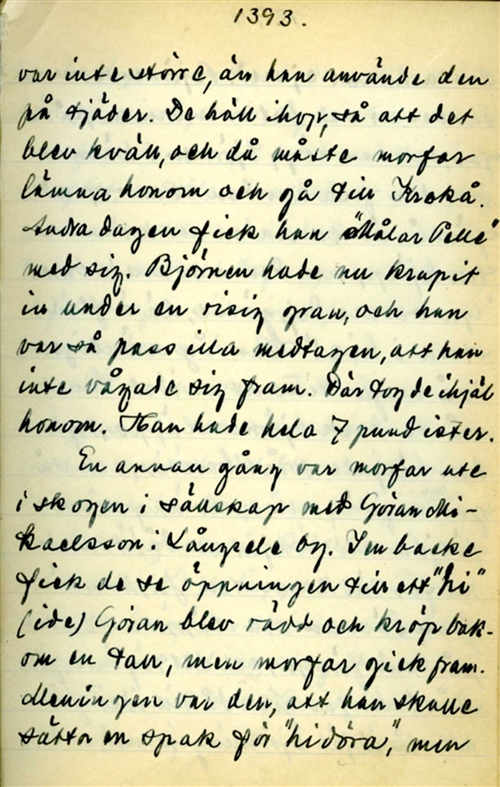 1393.
var inte större, än han använde den
på tjäder. De höll ihop, så att det
blev kväll, och då måste morfar
lämna honom och gå till Krokå.
Andra dagen fick han "Målar Pelle"
med sig. Björnen hade nu krupit
in under en risig gran, och han
var så pass illa medtagen, att han
inte vågade sig fram. Där tog de ihjäl
honom. Han hade hela 7 pund ister.
En annan gång var morfar ute
i skogen i sällskap med Göran Mi-
kaelsson i Långsele by. I en backe
fick de se öppningen till ett "hi"
(ide) Göran blev rädd och kröp bak-
om en tall, men morfar gick fram.
Meningen var den, att han skulle
sätta en spak för "hidöra", men